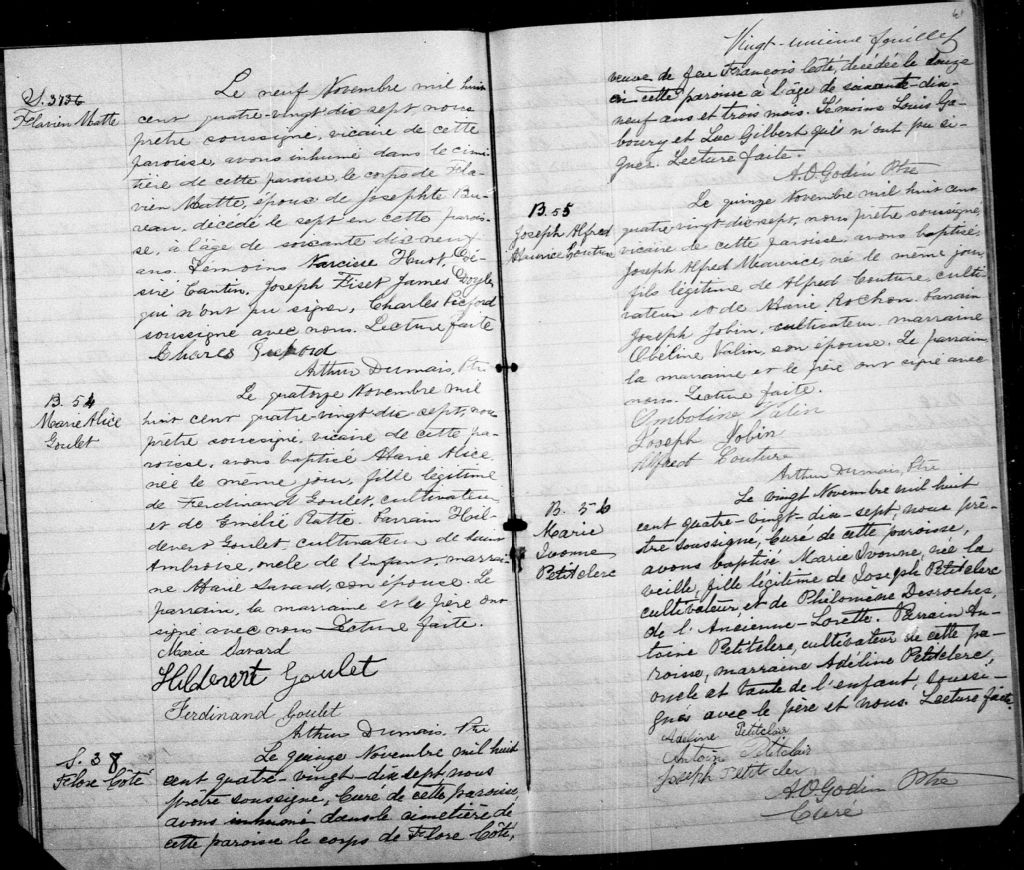 S. 37 36
Flavien Matte
Le neuf Novembre mil huit
cent quatre-vingt dix sept, nous
prêtre soussigné, vicaire de cette
paroisse, avons inhumé dans le cime-
tière de cette paroisse le corps de Fla-
vien Matte, époux de Josephte Bu-
reau, décédé le sept en cette parois-
se, à l'âge de soixante dix neuf
ans. Témoins Narcisse Huot, Dé-
siré Cantin, Joseph Fiset James Doyle,
qui n'ont pu signer, Charles
soussigné avec nous. Lecture faite
Charles
Arthur Dumais, Ptre
B. 54
Marie Alice
Goulet
Le quatorze Novembre mil
huit cent quatre-vingt dix sept, nous
prêtre soussigné, vicaire de cette pa-
roisse, avons baptisé Marie Alice,
née le même jour, fille légitime
de Ferdinand Goulet, cultivateur
et de Emélie Ratte. Parrain Hil-
devert Goulet, cultivateur de Saint
Ambroise, oncle de l'enfant, marrai-
ne Marie Savard, son épouse. Le
parrain, la marraine et le père ont
signé avec nous Lecture faite.
Marie Savard
Hildevert Goulet
Ferdinand Goulet
Arthur Dumais, Ptre
S. 38
Flore Côté
Le quinze Novembre mil huit
cent quatre-vingt-dix sept, nous
prêtre soussigné, Curé de cette paroisse
avons inhumé dans le cimetière de
cette paroisse le corps de Flore Côté,
Vingt-unième feuillet
veuve de feu François Côté, décédée le douze
en cette paroisse à l'âge de soixante-dix-
neuf ans et trois mois. Témoins Louis Ga-
boury et Luc Gilbert qui n'ont pu si-
gner. Lecture faite.
A.O. Godin Ptre
B. 55
Joseph Alfred
Maurice Couture
Le quinze Novembre mil huit cent
quatre vingt dix sept, nous prêtre soussigné,
vicaire de cette paroisse, avons baptisé
Joseph Alfred Maurice, né le même jour,
fils légitime de Alfred Couture, culti-
vateur et de Marie Rochon. Parrain
Joseph Jobin, cultivateur, marraine
Obéline Valin, son épouse. Le parrain,
la marraine et le père ont signé avec
nous. Lecture faite.
Valin
Joseph Jobin
Alfred Couture
Arthur Dumais, Ptre
B. 56
Marie
Ivonne
Petitclerc
Le vingt Novembre mil huit
cent quatre-vingt-dix-sept nous prê-
tre soussigné, Curé de cette paroisse,
avons baptisé Marie Ivonne, née la
veille, fille légitime de Joseph Petitclerc
cultivateur, et de Philomène Desroches,
de l'Ancienne-Lorette. Parrain An-
toine Petitclerc, cultivateur de cette pa-
roisse, marraine Adéline Petitclerc,
oncle et tante de l'enfant, soussi-
gnés avec le père et nous. Lecture faite
Adeline Petitclair
Antoine Petitclair
Joseph Petitclerc
A.O. Godin Ptre
Curé